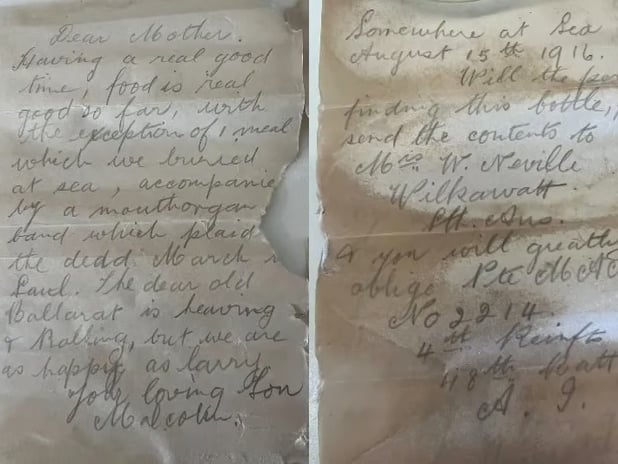 Dear Mother.
Having a real good
time, food is real
good so far, with
the exception of 1 meal
which we buried
at sea, accompanie
by a mouthorgan
band which plaid
the dedd March
Saul. The dear old
Ballarat is heaving
& Rolling, but we are
as happy as larry
Your loving Son
Malcolm.
Somewhere at Sea
August 15th 1916.
Will the per
finding this bottle,
send the contents to
Mrs. W. Neville
Wilkawatt.
Sth. Aus.
& you will greatly
oblige Pte M A
No 2214.
4th Reinfts
48th Batt
A. I.